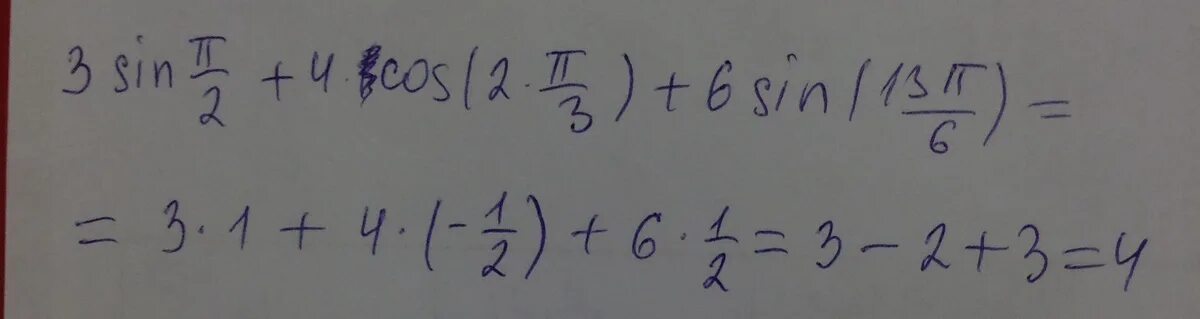 3 sin π/2 + 4 · cos(2 · π/3) + 6 sin(13π/6) =
= 3 · 1 + 4 · (-1/2) + 6 · 1/2 = 3 - 2 + 3 = 4